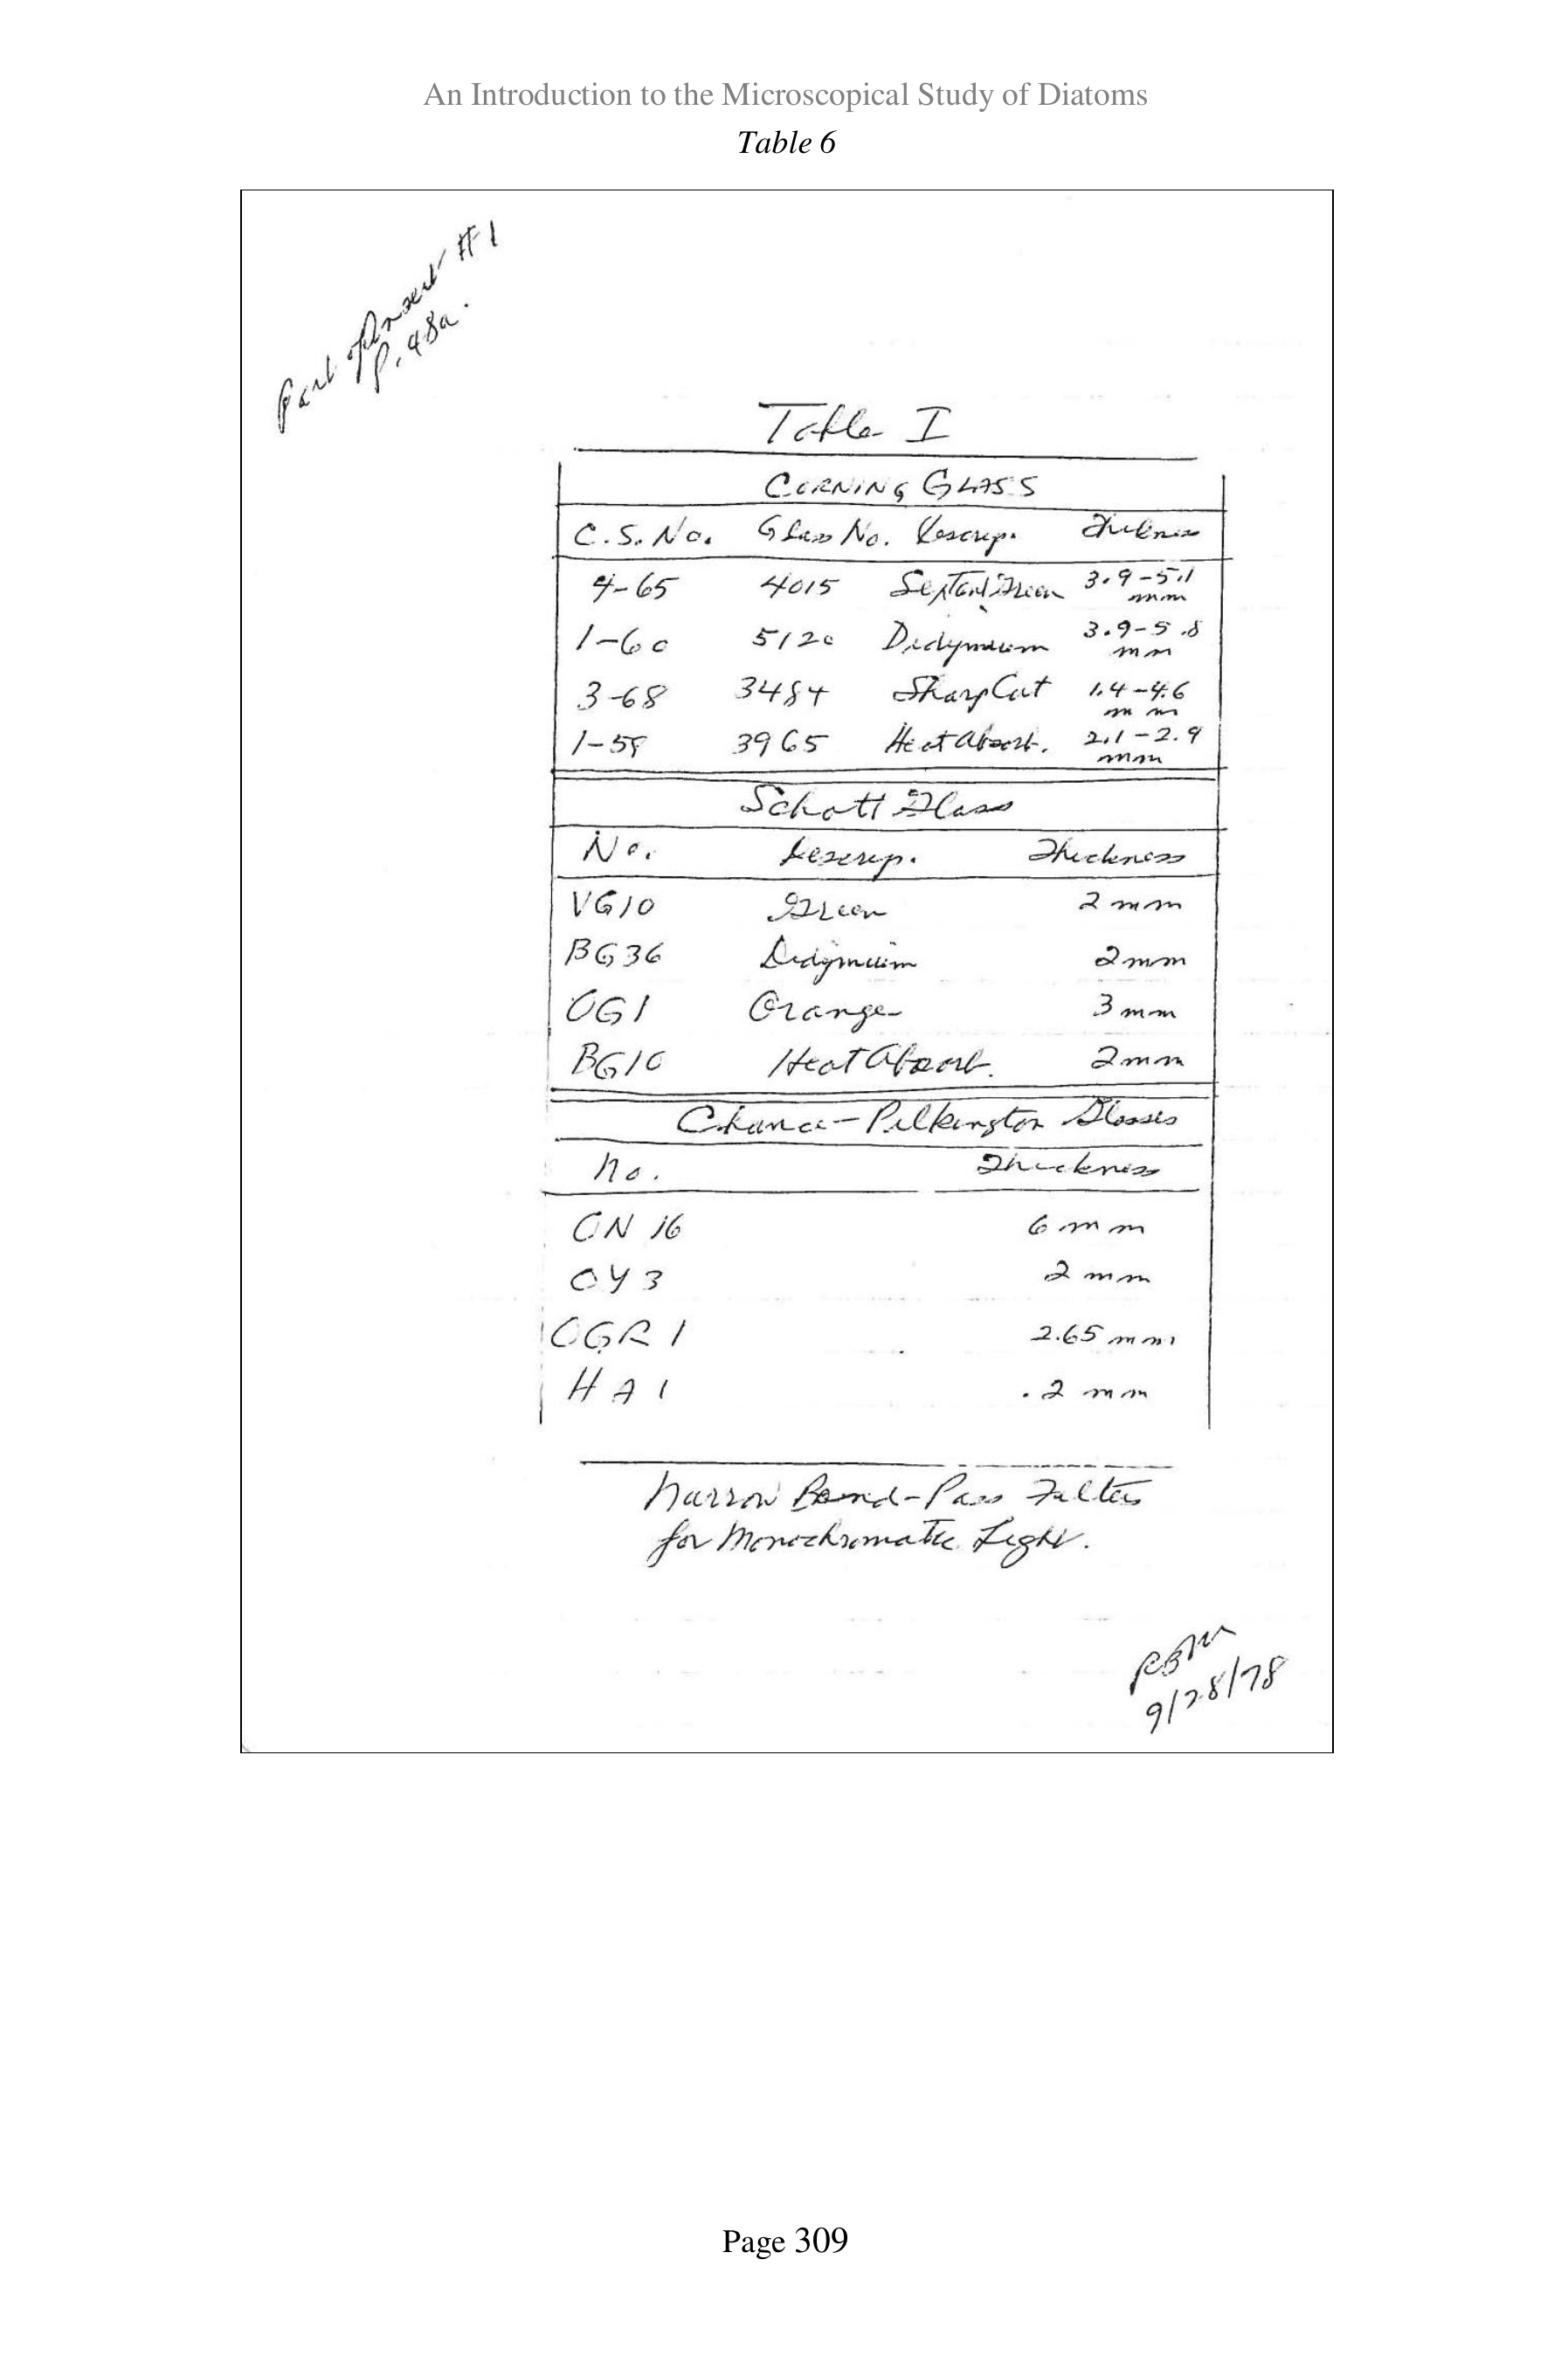 An Introduction to the Microscopical Study of Diatoms
Table 6
Part of Insert #1
P. 48a.
Table I
CORNING GLASS
C.S. No. Glass No. Descrip. Thickness
4-65 4015 Green 3.9-5.1 mm
1-60 5120 Didymium 3.9-5.8 mm
3-68 3484 Sharp Cut 1.4-4.6 mm
1-59 3965 Heat Absorb. 2.1-2.9 mm
Schott Glass
No. Descrip. Thickness
VG10 Green 2 mm
BG36 Didymium 2 mm
OG1 Orange 3 mm
BG10 Heat Absorb. 2 mm
Chance-Pilkington Glasses
No. Thickness
ON 16 6 mm
OY 3 2 mm
OGR 1 2.65 mm
HA 1 .2 mm
Narrow Band-Pass Filters
for Monochromatic Light.
RBM
9/28/78
Page 309